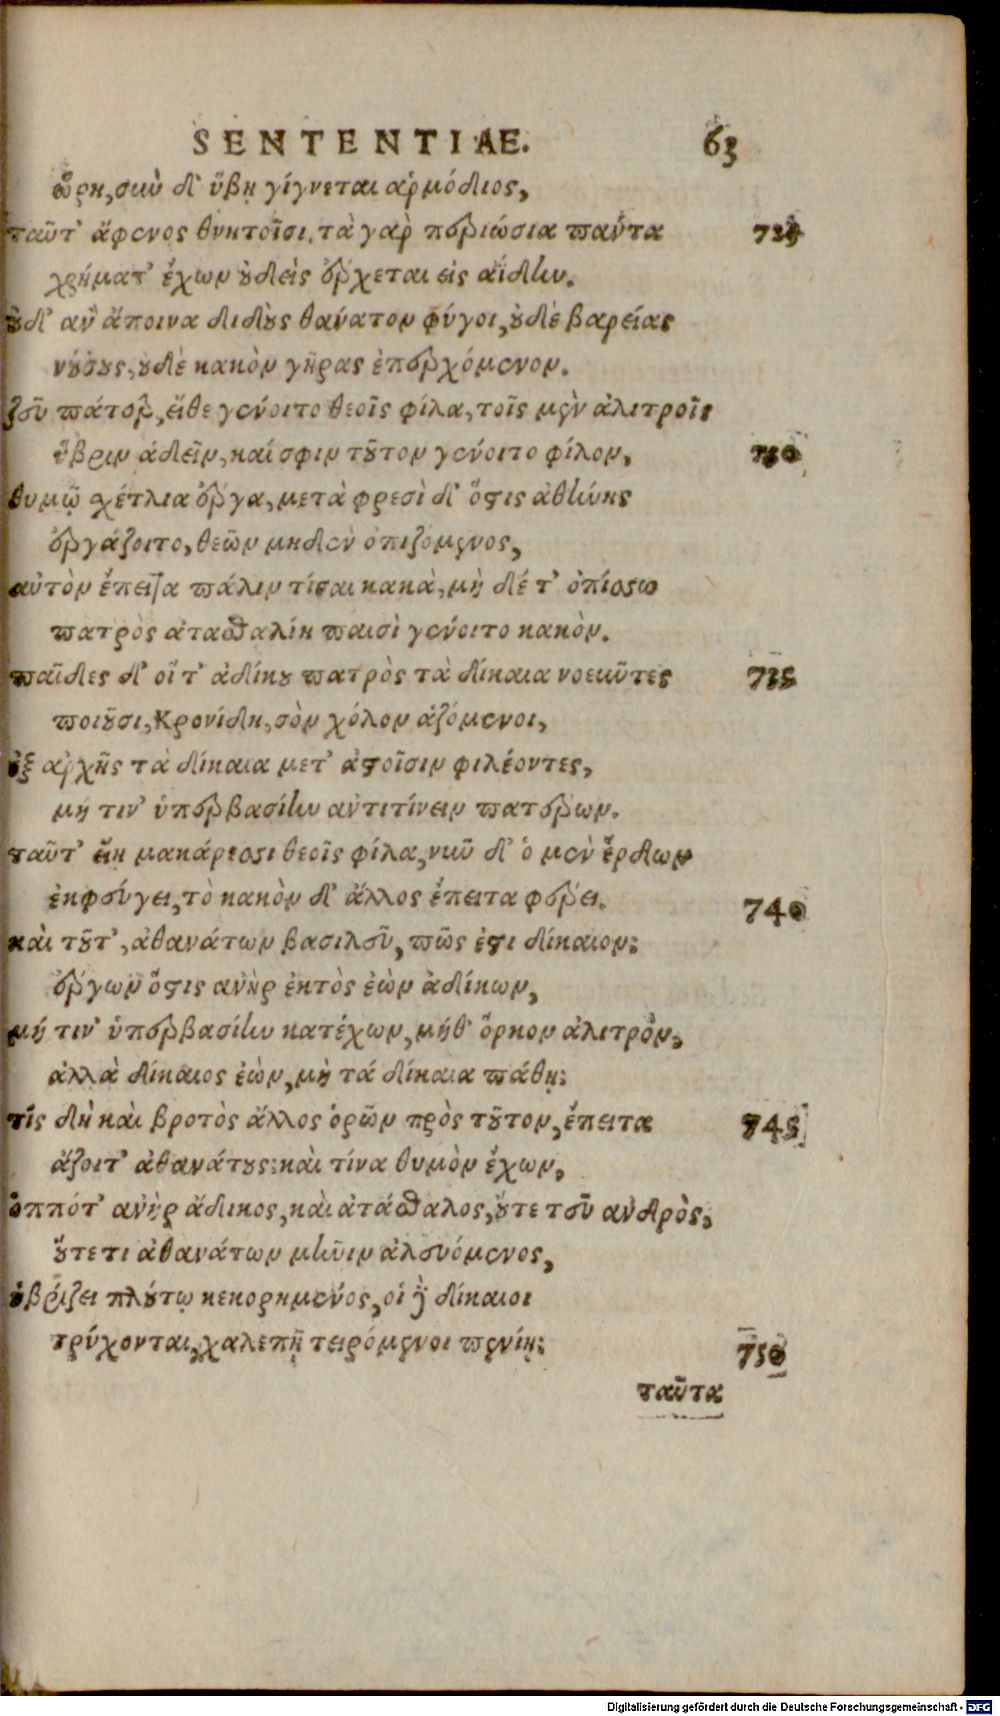 SENTENTIAE. 63
ὥρη, σὺν δ' ἥβῃ γίγνεται ἁρμόδιος,
ταῦτ' ἄφενος θνητοῖσι, τὰ γὰρ περιώσια πάντα 725
χρήματ' ἔχων οὐδεὶς ἔρχεται εἰς ἀΐδην.
οὐδ' ἂν ἄποινα διδοὺς θάνατον φύγοι, οὐδὲ βαρείας
νούσους, οὐδὲ κακὸν γῆρας ἐπερχόμενον.
ζεῦ πάτερ, εἴθε γένοιτο θεοῖς φίλα, τοῖς μὲν ἀλιτροῖς
ὕβριν ἁδεῖν, καί σφιν τοῦτον γένοιτο φίλον, 730
θυμῷ σχέτλια ἔργα, μετὰ φρεσὶ δ' ὅστις ἀθήνης
ἐργάζοιτο, θεῶν μηδὲν ὀπιζόμενος,
αὐτὸν ἔπειτα πάλιν τίσαι κακὰ, μὴ δέ τ' ὀπίσσω
πατρὸς ἀτασθαλίη παισὶ γένοιτο κακὸν.
παῖδες δ' οἵ τ' ἀδίκου πατρὸς τὰ δίκαια νοεῦντες 735
ποιοῦσι, Κρονίδη, σὸν χόλον ἁζόμενοι,
ἐξ ἀρχῆς τὰ δίκαια μετ' ἀστοῖσιν φιλέοντες,
μή τιν' ὑπερβασίην ἀντιτίνειν πατέρων.
ταῦτ' εἴη μακάρεσσι θεοῖς φίλα, νῦν δ' ὁ μὲν ἔρδων
ἐκφεύγει, τὸ κακὸν δ' ἄλλος ἔπειτα φέρει. 740
καὶ τοῦτ', ἀθανάτων βασιλεῦ, πῶς ἐστι δίκαιον;
ἔργων ὅστις ἀνὴρ ἐκτὸς ἐὼν ἀδίκων,
μή τιν' ὑπερβασίην κατέχων, μήθ' ὅρκον ἀλιτρόν,
ἀλλὰ δίκαιος ἐὼν, μὴ τά δίκαια πάθῃ;
τίς δὴ καὶ βροτὸς ἄλλος ὁρῶν πρὸς τοῦτον, ἔπειτα 745
ἅζοιτ' ἀθανάτους; καὶ τίνα θυμὸν ἔχων,
ὁππότ' ἀνὴρ ἄδικος, καὶ ἀτάσθαλος, οὔτε τεῦ ἀνδρὸς,
οὔτε τι ἀθανάτων μῆνιν ἀλευόμενος,
ὑβρίζει πλούτῳ κεκορημένος, οἱ δὲ δίκαιοι
τρύχονται, χαλεπῇ τειρόμενοι πενίῃ; 750
ταῦτα
Digitalisierung gefördert durch die Deutsche Forschungsgemeinschaft - DFG